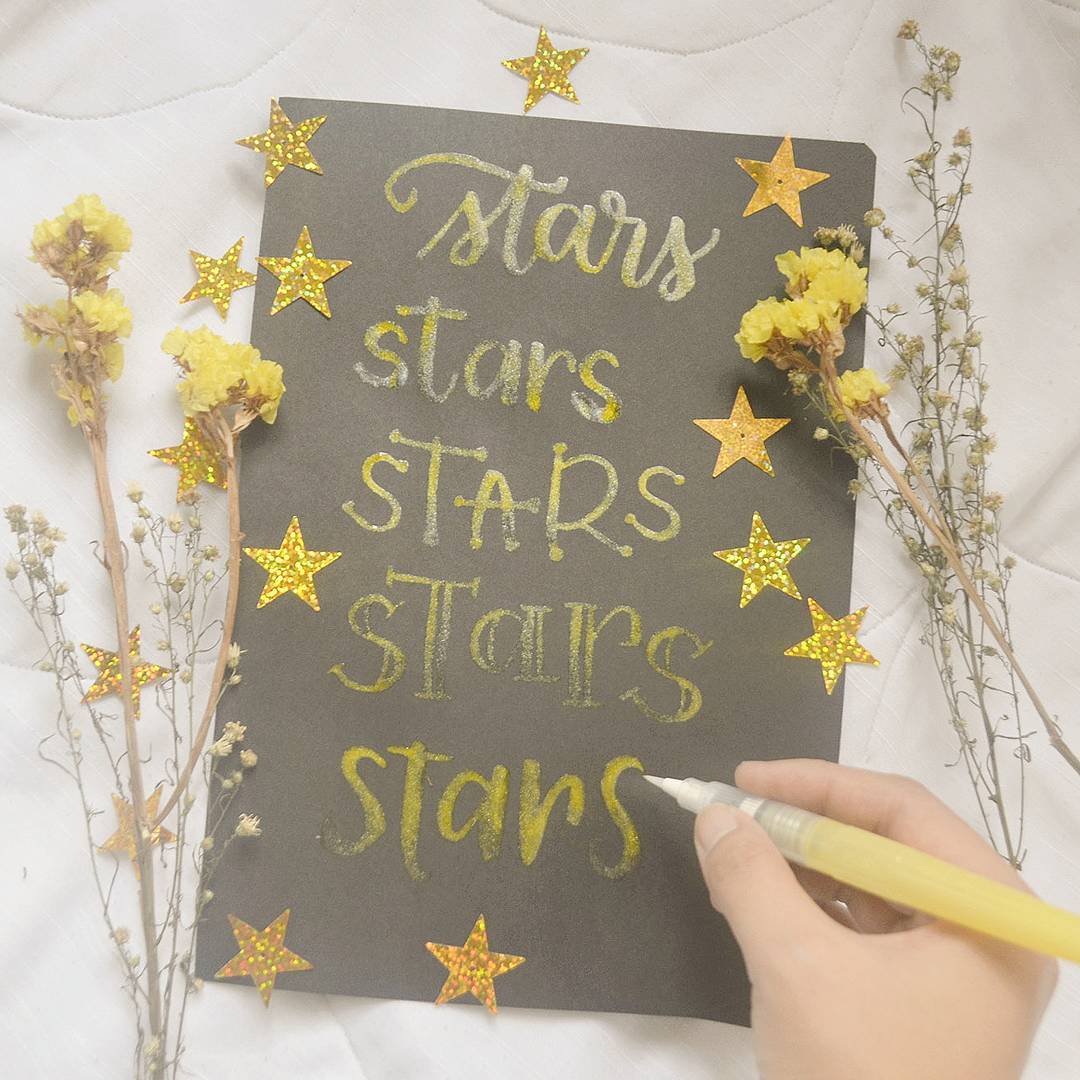 stars
stars
STARS
STarS
stars